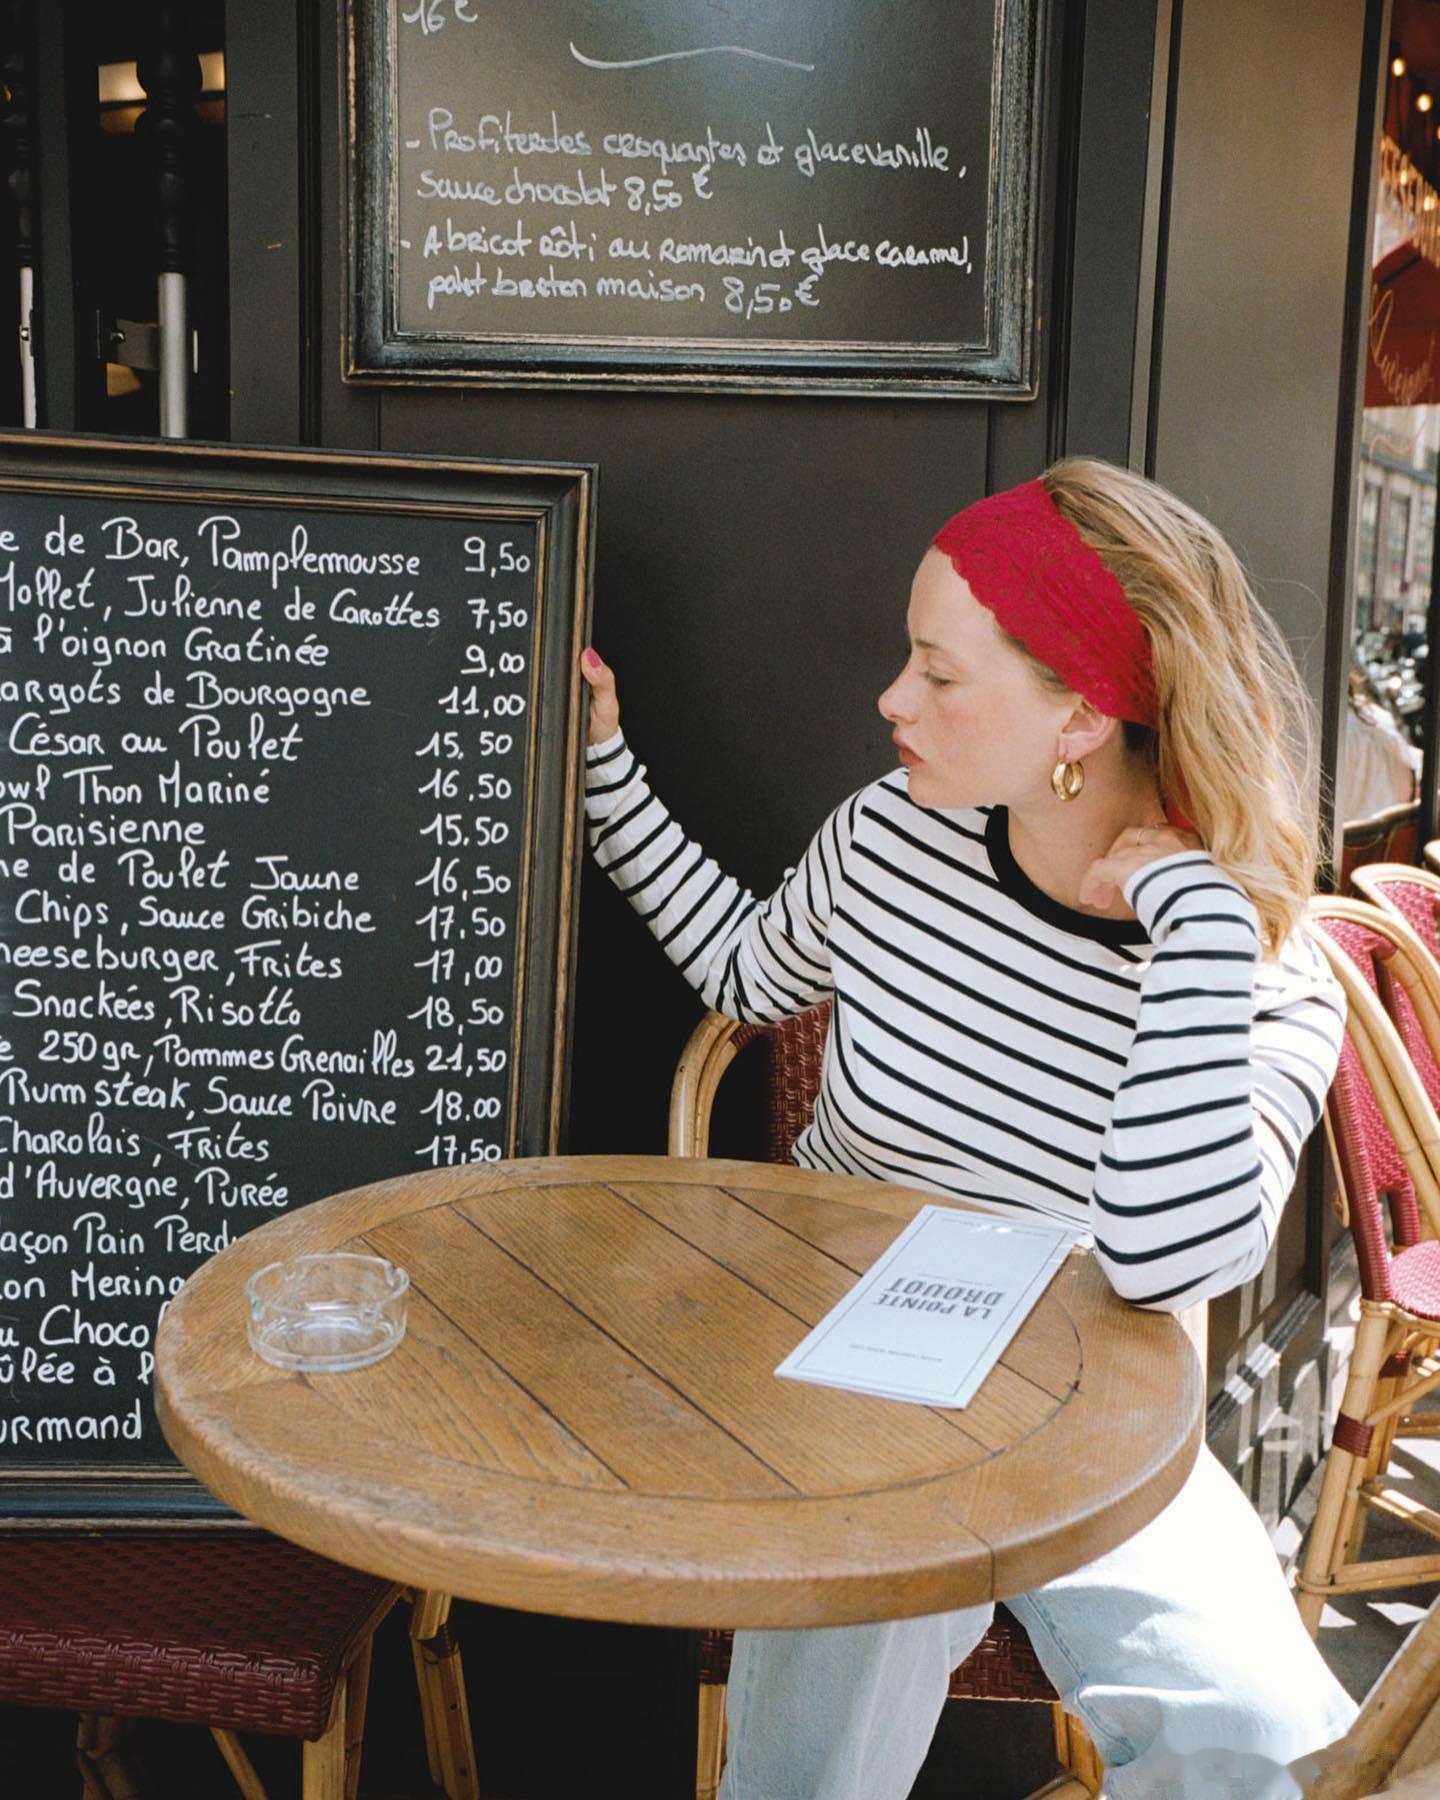 16 €
- Profiteroles croquantes et glace vanille,
sauce chocolat 8,50 €
- Abricot rôti au Romarin et glace caramel,
palet breton maison 8,50 €
e de Bar, Pamplemousse 9,50
Mollet, Julienne de Carottes 7,50
à l'oignon Gratinée 9,00
argots de Bourgogne 11,00
César au Poulet 15.50
owl Thon Mariné 16.50
Parisienne 15.50
ne de Poulet Jaune 16,50
Chips, Sauce Gribiche 17.50
heeseburger, Frites 17,00
Snackées, Risotto 18,50
e 250gr, Pommes Grenailles 21,50
Rumsteak, Sauce Poivre 18.00
Charolais, Frites 17,50
d'Auvergne, Purée
açon Pain Perdu
on Mering
u Choco
ûlée à l
urmand
LA POINTE
DROUOT